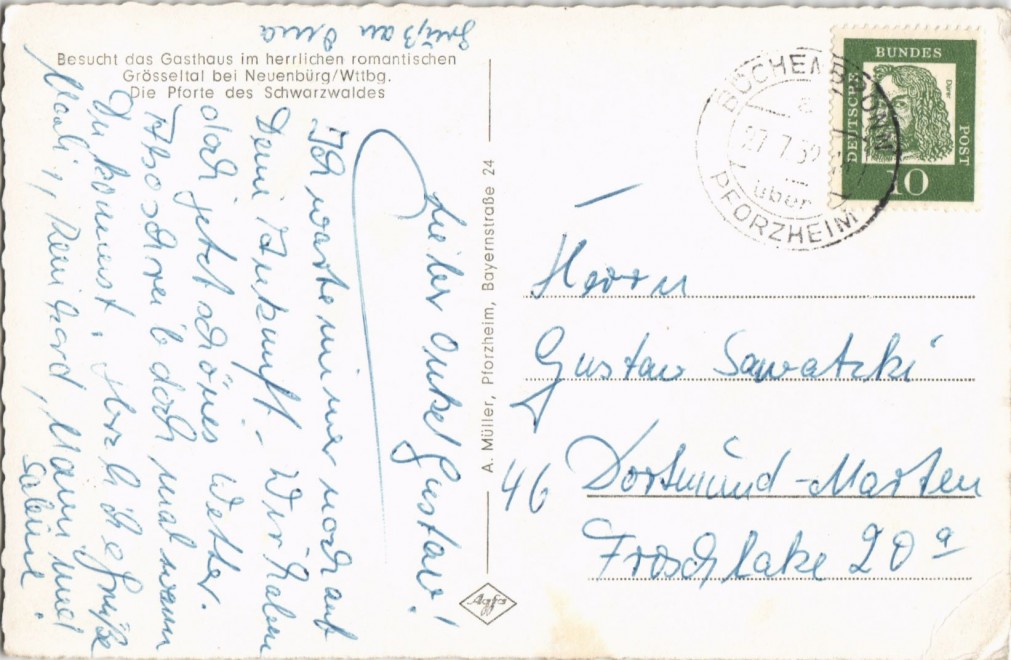 Besucht das Gasthaus im herrlichen romantischen
Grösseltal bei Neuenbürg/Wttbg.
Die Pforte des Schwarzwaldes
Lieber Onkel Gustav!
Ich warte immer noch auf
Deine Ankunft. Wir haben
doch jetzt schönes Wetter.
Also schreib doch mal wann
Du kommst. Herzliche Grüße
Reinhard, Mami und
Sabine.
Gruß an Oma
A. Müller, Pforzheim, Bayernstraße 24
Agfa
BÜCHENBRONN
a
27.7.
über
PFORZHEIM
DEUTSCHE
BUNDES
POST
Dürer
10
Herrn
Gustav Sawatzki
46 Dortmund-Marten
Froschlake 20a